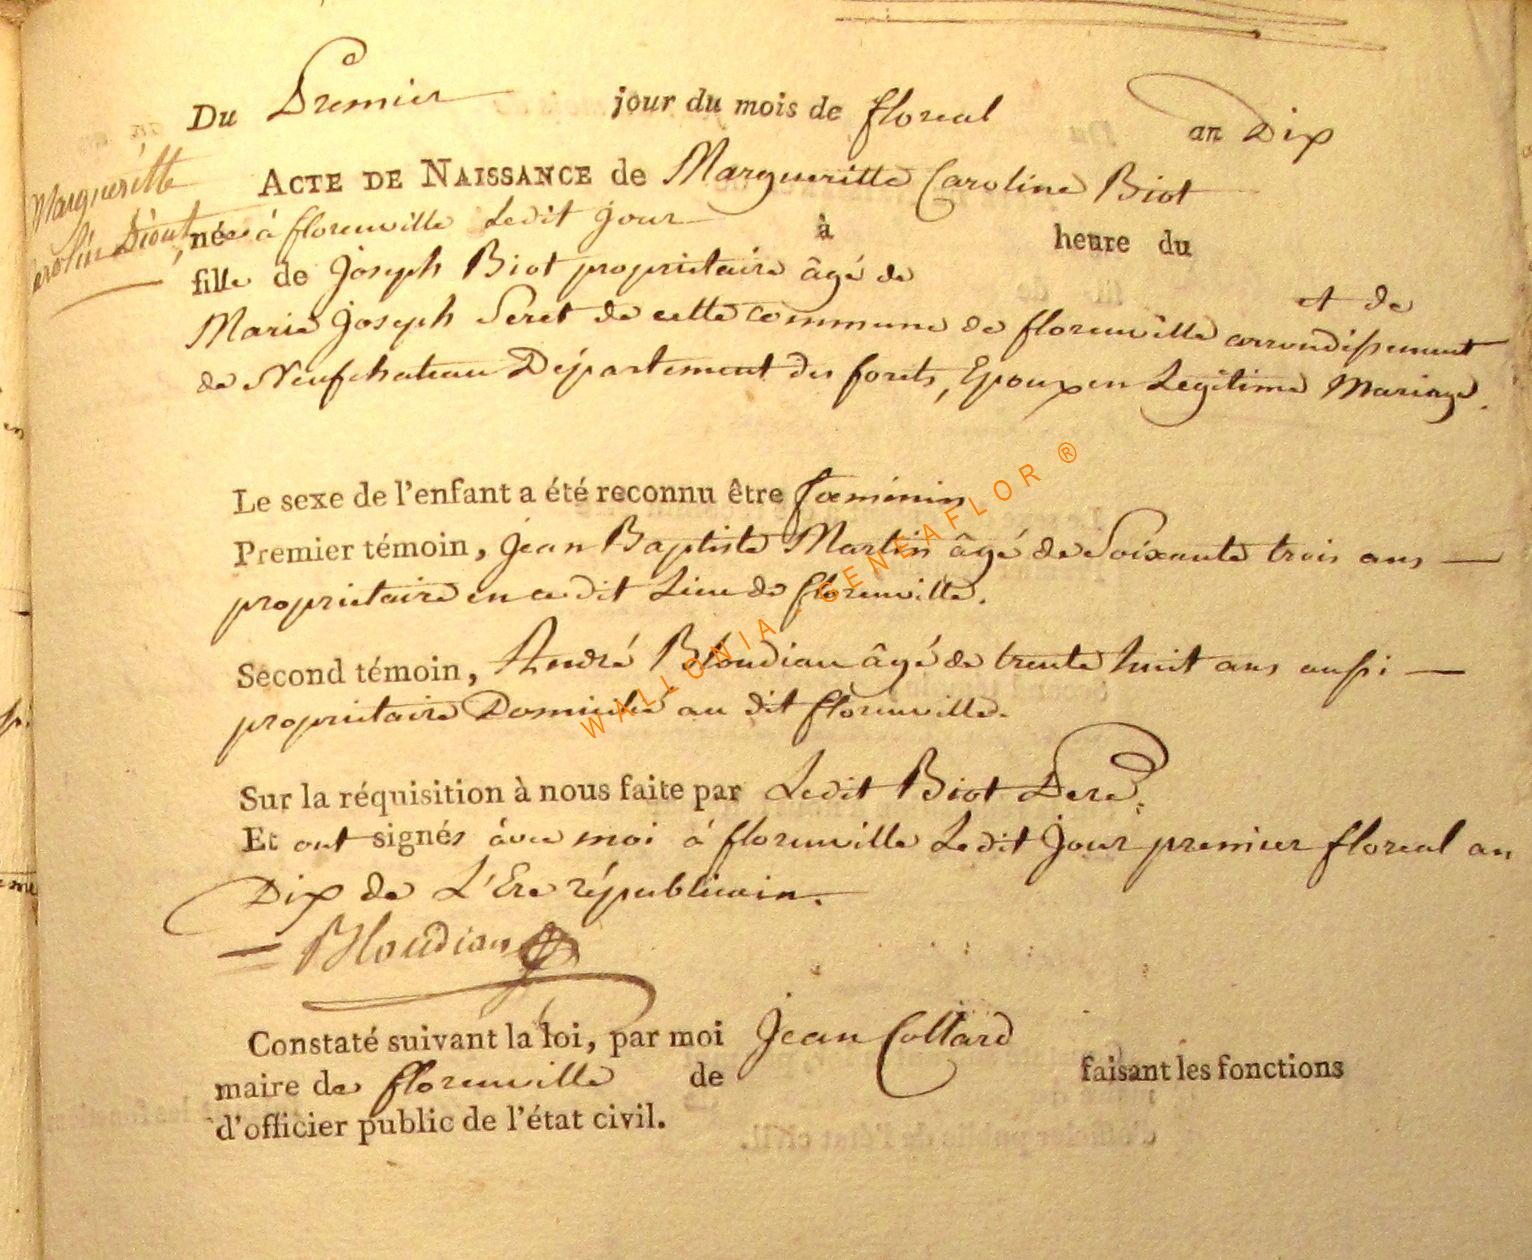 Du Premier jour du mois de floreal an Dix
Margueritte
Carolin Biout
ACTE DE NAISSANCE de Margueritte Caroline Biot
née à florenville Ledit jour à heure du
fille de Joseph Biot proprietaire âgé de et de
Marie Joseph Seret de cette commune de florenville arrondissement
de Neufchateau Département des forets, Epoux en Legitime Mariage.
Le sexe de l'enfant a été reconnu être fœminin
Premier témoin, Jean Baptiste Martin âgé de Soixante trois ans —
proprietaire en ce dit Lieu de florenville.
Second témoin, André Bloudiau âgé de trente huit ans aussi —
proprietaire Domicilié au dit florenville.
Sur la réquisition à nous faite par Ledit Biot Pere.
Et ont signés avec moi à florenville Ledit Jour premier floreal an
Dix de L'Ere républicain.
Bloudiau
Constaté suivant la loi, par moi Jean Collard
maire de florenville de faisant les fonctions
d'officier public de l'état civil.
WALLONIA - GENEAFLOR ®